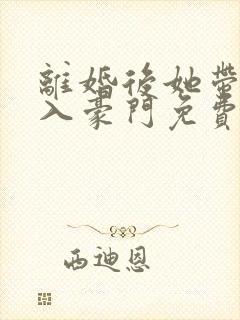 離婚後她帶
入豪門免費
西迪恩